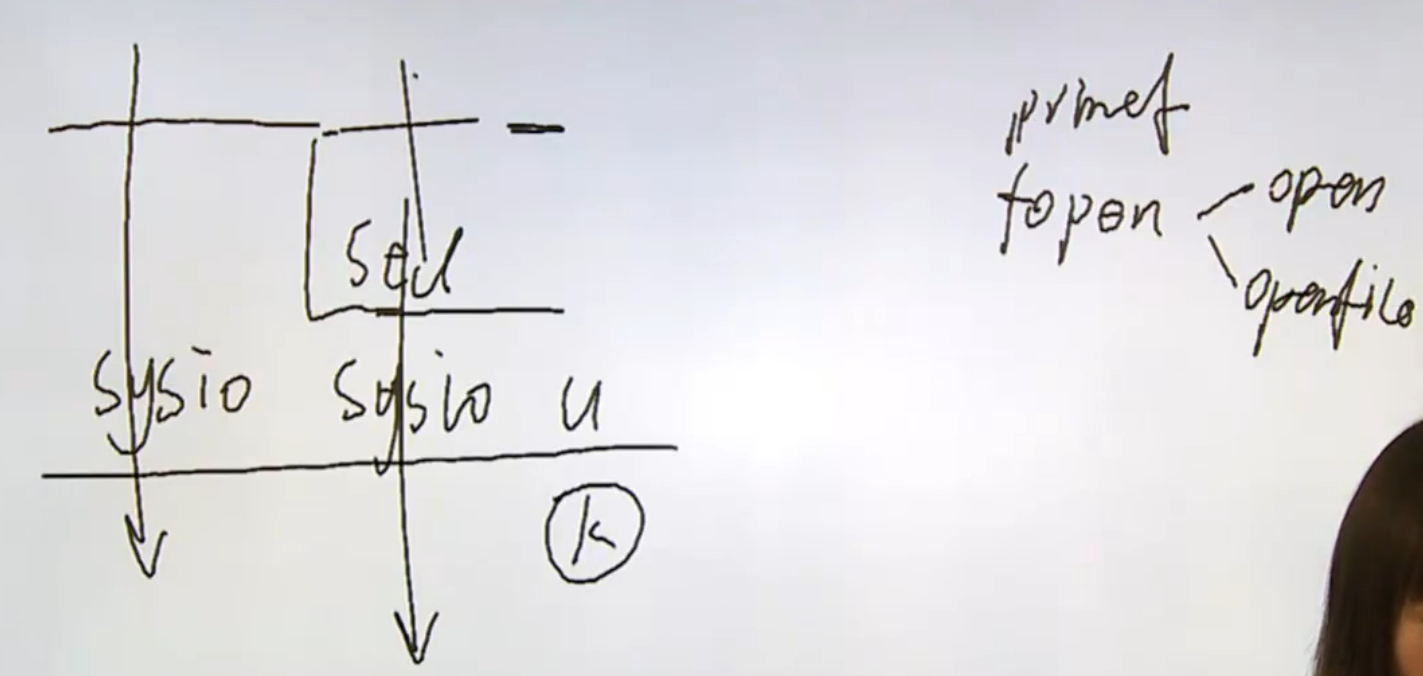 sysio sysio u
k
printf
fopen
open
openfile